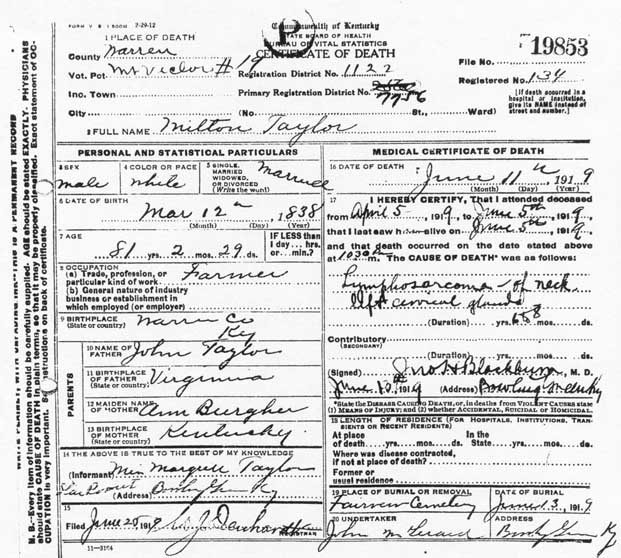 FORM V. S. 1 500M 7-29-12
Commonwealth of Kentucky
STATE BOARD OF HEALTH
BUREAU OF VITAL STATISTICS
CERTIFICATE OF DEATH
1 PLACE OF DEATH
County Warren
File No. 19853
Vot. Pct. Mt Victor #19 Registration District No. 1122
Registered No. 134
Inc. Town Primary Registration District No. 7756
[If death occurred in a hospital or institution, give its NAME instead of street and number.]
City (No. St., Ward)
2 FULL NAME Milton Taylor
PERSONAL AND STATISTICAL PARTICULARS
3 SEX male
4 COLOR OR RACE white
5 SINGLE, MARRIED WIDOWED, OR DIVORCED (Write the word) Married
6 DATE OF BIRTH
Mar 12 1838
(Month) (Day) (Year)
7 AGE
81 yrs. 2 mos. 29 ds.
IF LESS than 1 day ... hrs. or ... min.?
8 OCCUPATION
(a) Trade, profession, or particular kind of work Farmer
(b) General nature of industry business or establishment in which employed (or employer)
9 BIRTHPLACE (State or country) Warren Co Ky
PARENTS
10 NAME OF FATHER John Taylor
11 BIRTHPLACE OF FATHER (State or country) Virginia
12 MAIDEN NAME OF MOTHER Ann Burgher
13 BIRTHPLACE OF MOTHER (State or country) Kentucky
14 THE ABOVE IS TRUE TO THE BEST OF MY KNOWLEDGE
(Informant) Taylor
(Address)
15
Filed June 25 191
REGISTRAR
11-3184
MEDICAL CERTIFICATE OF DEATH
16 DATE OF DEATH
June 11 1919
(Month) (Day) (Year)
17 I HEREBY CERTIFY, That I attended deceased
from April 5, 1919, to June 5th, 1919
that I last saw h alive on June 5th, 1919
and that death occurred on the date stated above
at 1030 m. The CAUSE OF DEATH* was as follows:
Lymphosarcoma of neck
left cervical glands
(Duration) yrs. mos. ds.
Contributory
(SECONDARY)
(Duration) yrs. mos. ds.
(Signed) Jno H Blackburn, M. D.
June 13, 1919 (Address) Bowling Green Ky
*State the DISEASE CAUSING DEATH, or, in deaths from VIOLENT CAUSES state (1) MEANS OF INJURY; and (2) whether ACCIDENTAL, SUICIDAL OR HOMICIDAL.
18 LENGTH OF RESIDENCE (FOR HOSPITALS, INSTITUTIONS, TRANSIENTS OR RECENT RESIDENTS)
At place of death yrs. mos. ds. In the State yrs. mos. ds.
Where was disease contracted, if not at place of death?
Former or usual residence
19 PLACE OF BURIAL OR REMOVAL Fairview Cemetery
DATE OF BURIAL June 13, 1919
20 UNDERTAKER John
ADDRESS Bowling Green Ky
N. B.—Every item of information should be carefully supplied. AGE should be stated EXACTLY. PHYSICIANS should state CAUSE OF DEATH in plain terms, so that it may be properly classified. Exact statement of OCCUPATION is very important. See instructions on back of certificate.